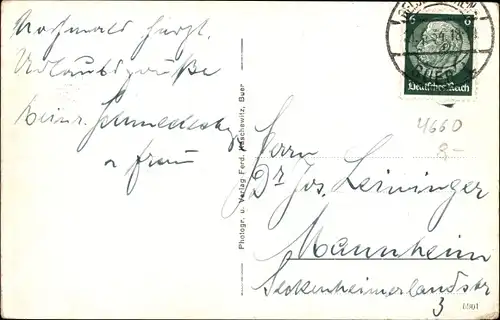 Nochmals herzl.
Urlaubsgrüße
Heinr.
u Frau
Photogr. u. Verlag Ferd. Kaschewitz, Buer
6 6
Deutsches Reich
BUER
4660
8-
Herrn
Dr Jos. Leininger
Mannheim
Seckenheimerlandstr
3
6901